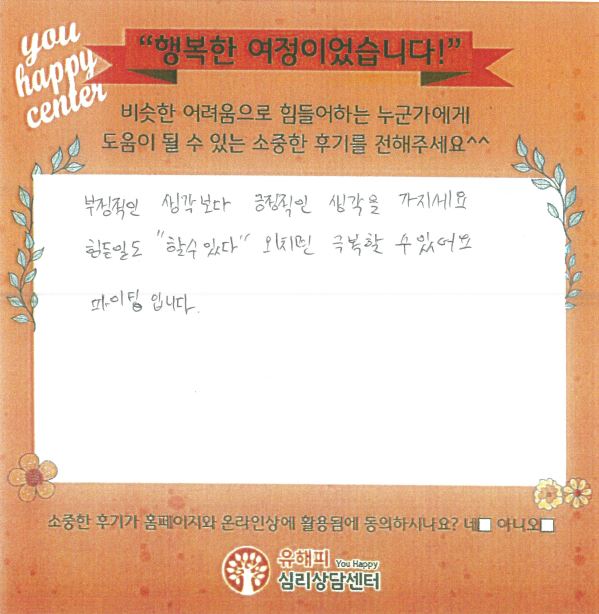 you
happy
center
“행복한 여정이었습니다!”
비슷한 어려움으로 힘들어하는 누군가에게
도움이 될 수 있는 소중한 후기를 전해주세요^^
부정적인 생각보다 긍정적인 생각을 가지세요
힘든일도 "할수있다" 외치면 극복할 수있어요
파이팅 입니다.
소중한 후기가 홈페이지와 온라인상에 활용됨에 동의하시나요? 네□ 아니오□
유해피 You Happy
심리상담센터